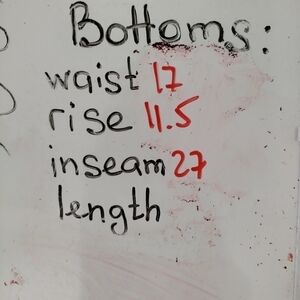 Bottoms:
waist 17
rise 11.5
inseam 27
length